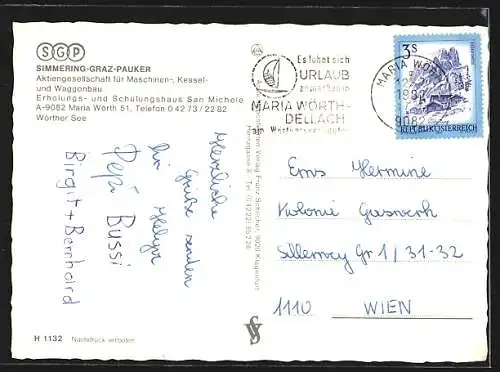 SGP
SIMMERING-GRAZ-PAUKER
Aktiengesellschaft für Maschinen-, Kessel-
und Waggonbau
Erholungs- und Schulungshaus San Michele
A-9082 Maria Wörth 51, Telefon 0 42 73 / 22 82
Wörther See
Herzliche
Grüße senden
Dir Helga
Pepi Bussi
Birgit + Bernhard
H 1132 Nachdruck verboten
Es lohnt sich
URLAUB
MARIA WÖRTH-
DELLACH
am Wörthersee
MARIA WÖRTH
9082
3S
REPUBLIK ÖSTERREICH
Verlag Franz Schilcher, 9020 Klagenfurt
Erns Hermine
Kolonie Gaswerk
Gr 1 / 31-32
1110 WIEN